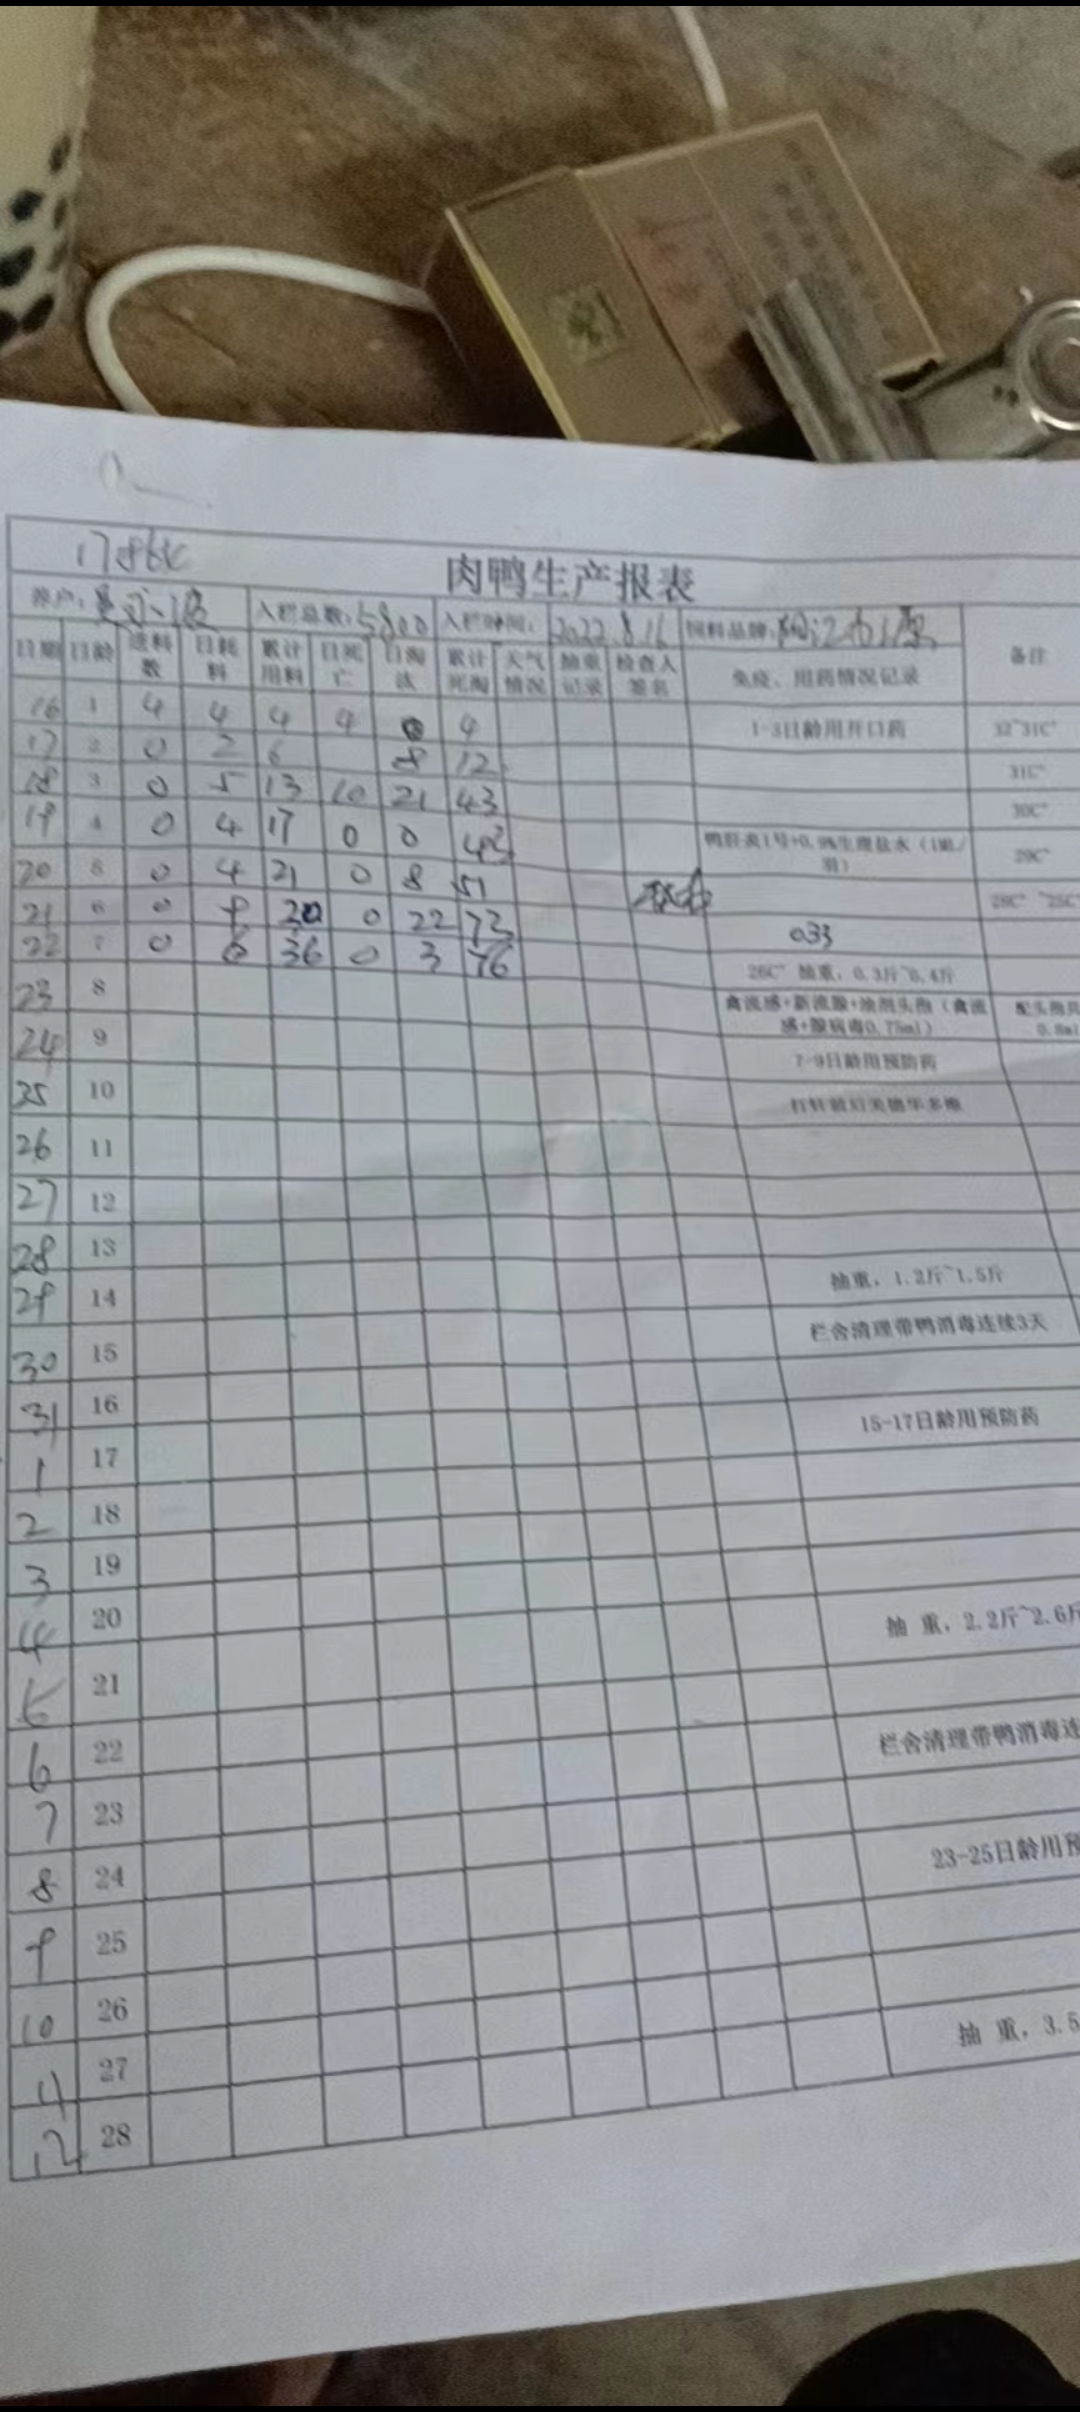 肉鸭生产报表
养户: 入栏总数: 5800 入栏时间: 2022.8.16 饲料品牌:
日期 日龄 进料数 日耗料 累计用料 日死亡 日淘汰 累计死淘 天气情况 抽重记录 检查人签名 免疫、用药情况记录 备注
16 1 4 4 4 4 0 4 1-3日龄用开口药 32~31C°
17 2 0 2 6 8 12 31C°
18 3 0 5 13 10 21 43 30C°
19 4 0 4 17 0 0 鸭肝炎1号+0.9%生理盐水（1ML/羽） 29C°
20 5 0 4 21 0 8 51 28C° ~25C°
21 6 0 9 30 0 22 73 033
22 7 0 6 36 0 3 76 26C° 抽重，0.3斤~0.4斤
23 8 禽流感+新流腺+浆剂头孢（禽流感+腺病毒0.75ml） 配头孢 0.8ml
24 9 7-9日龄用预防药
25 10 打针前后 多维
26 11
27 12
28 13
29 14 抽重，1.2斤~1.5斤
30 15 栏舍清理带鸭消毒连续3天
31 16
1 17 15-17日龄用预防药
2 18
3 19
4 20
5 21 抽 重，2.2斤~2.6斤
6 22
7 23 栏舍清理带鸭消毒连
8 24
9 25 23-25日龄用预
10 26
11 27
12 28 抽 重，3.5